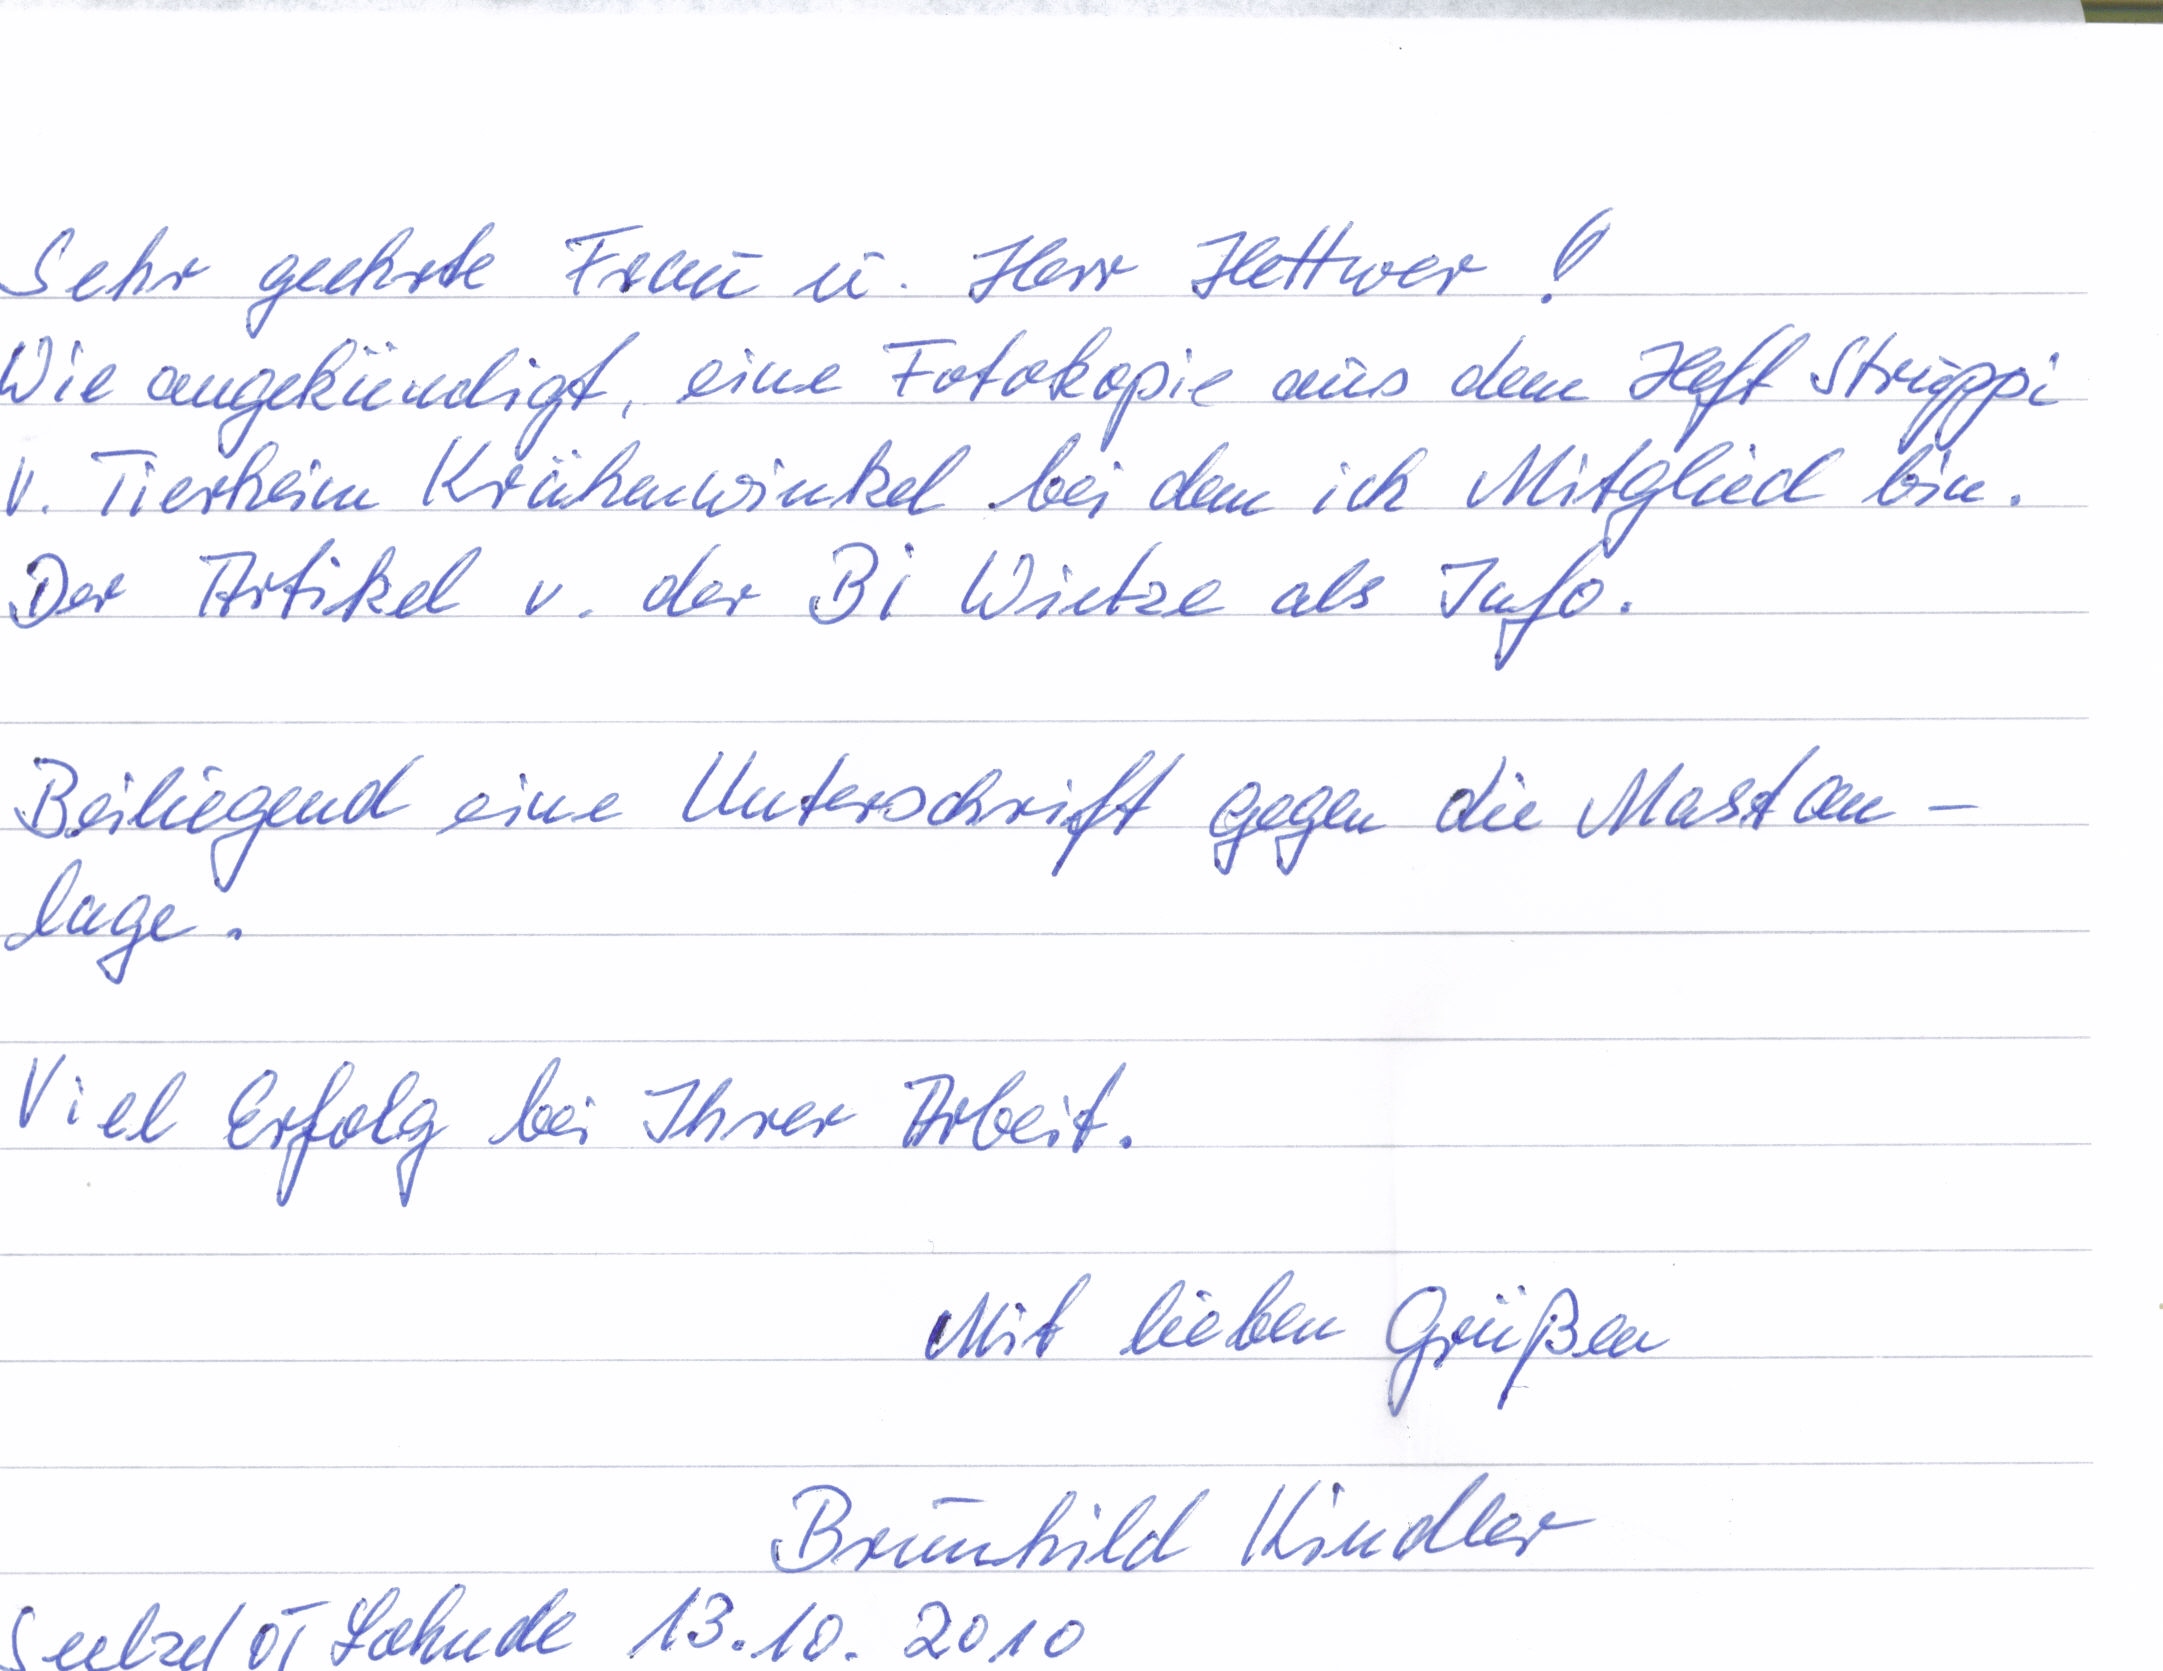 Sehr geehrte Frau u. Herr Hettwer!
Wie angekündigt, eine Fotokopie aus dem Heft Struppi
v. Tierheim Krähenwinkel bei dem ich Mitglied bin.
Der Artikel v. der Bi Wietze als Info.
Beiliegend eine Unterschrift gegen die Mastan-
lage.
Viel Erfolg bei Ihrer Arbeit.
Mit lieben Grüßen
Brunhild Kindler
Seelze/OT Lohnde 13.10.2010